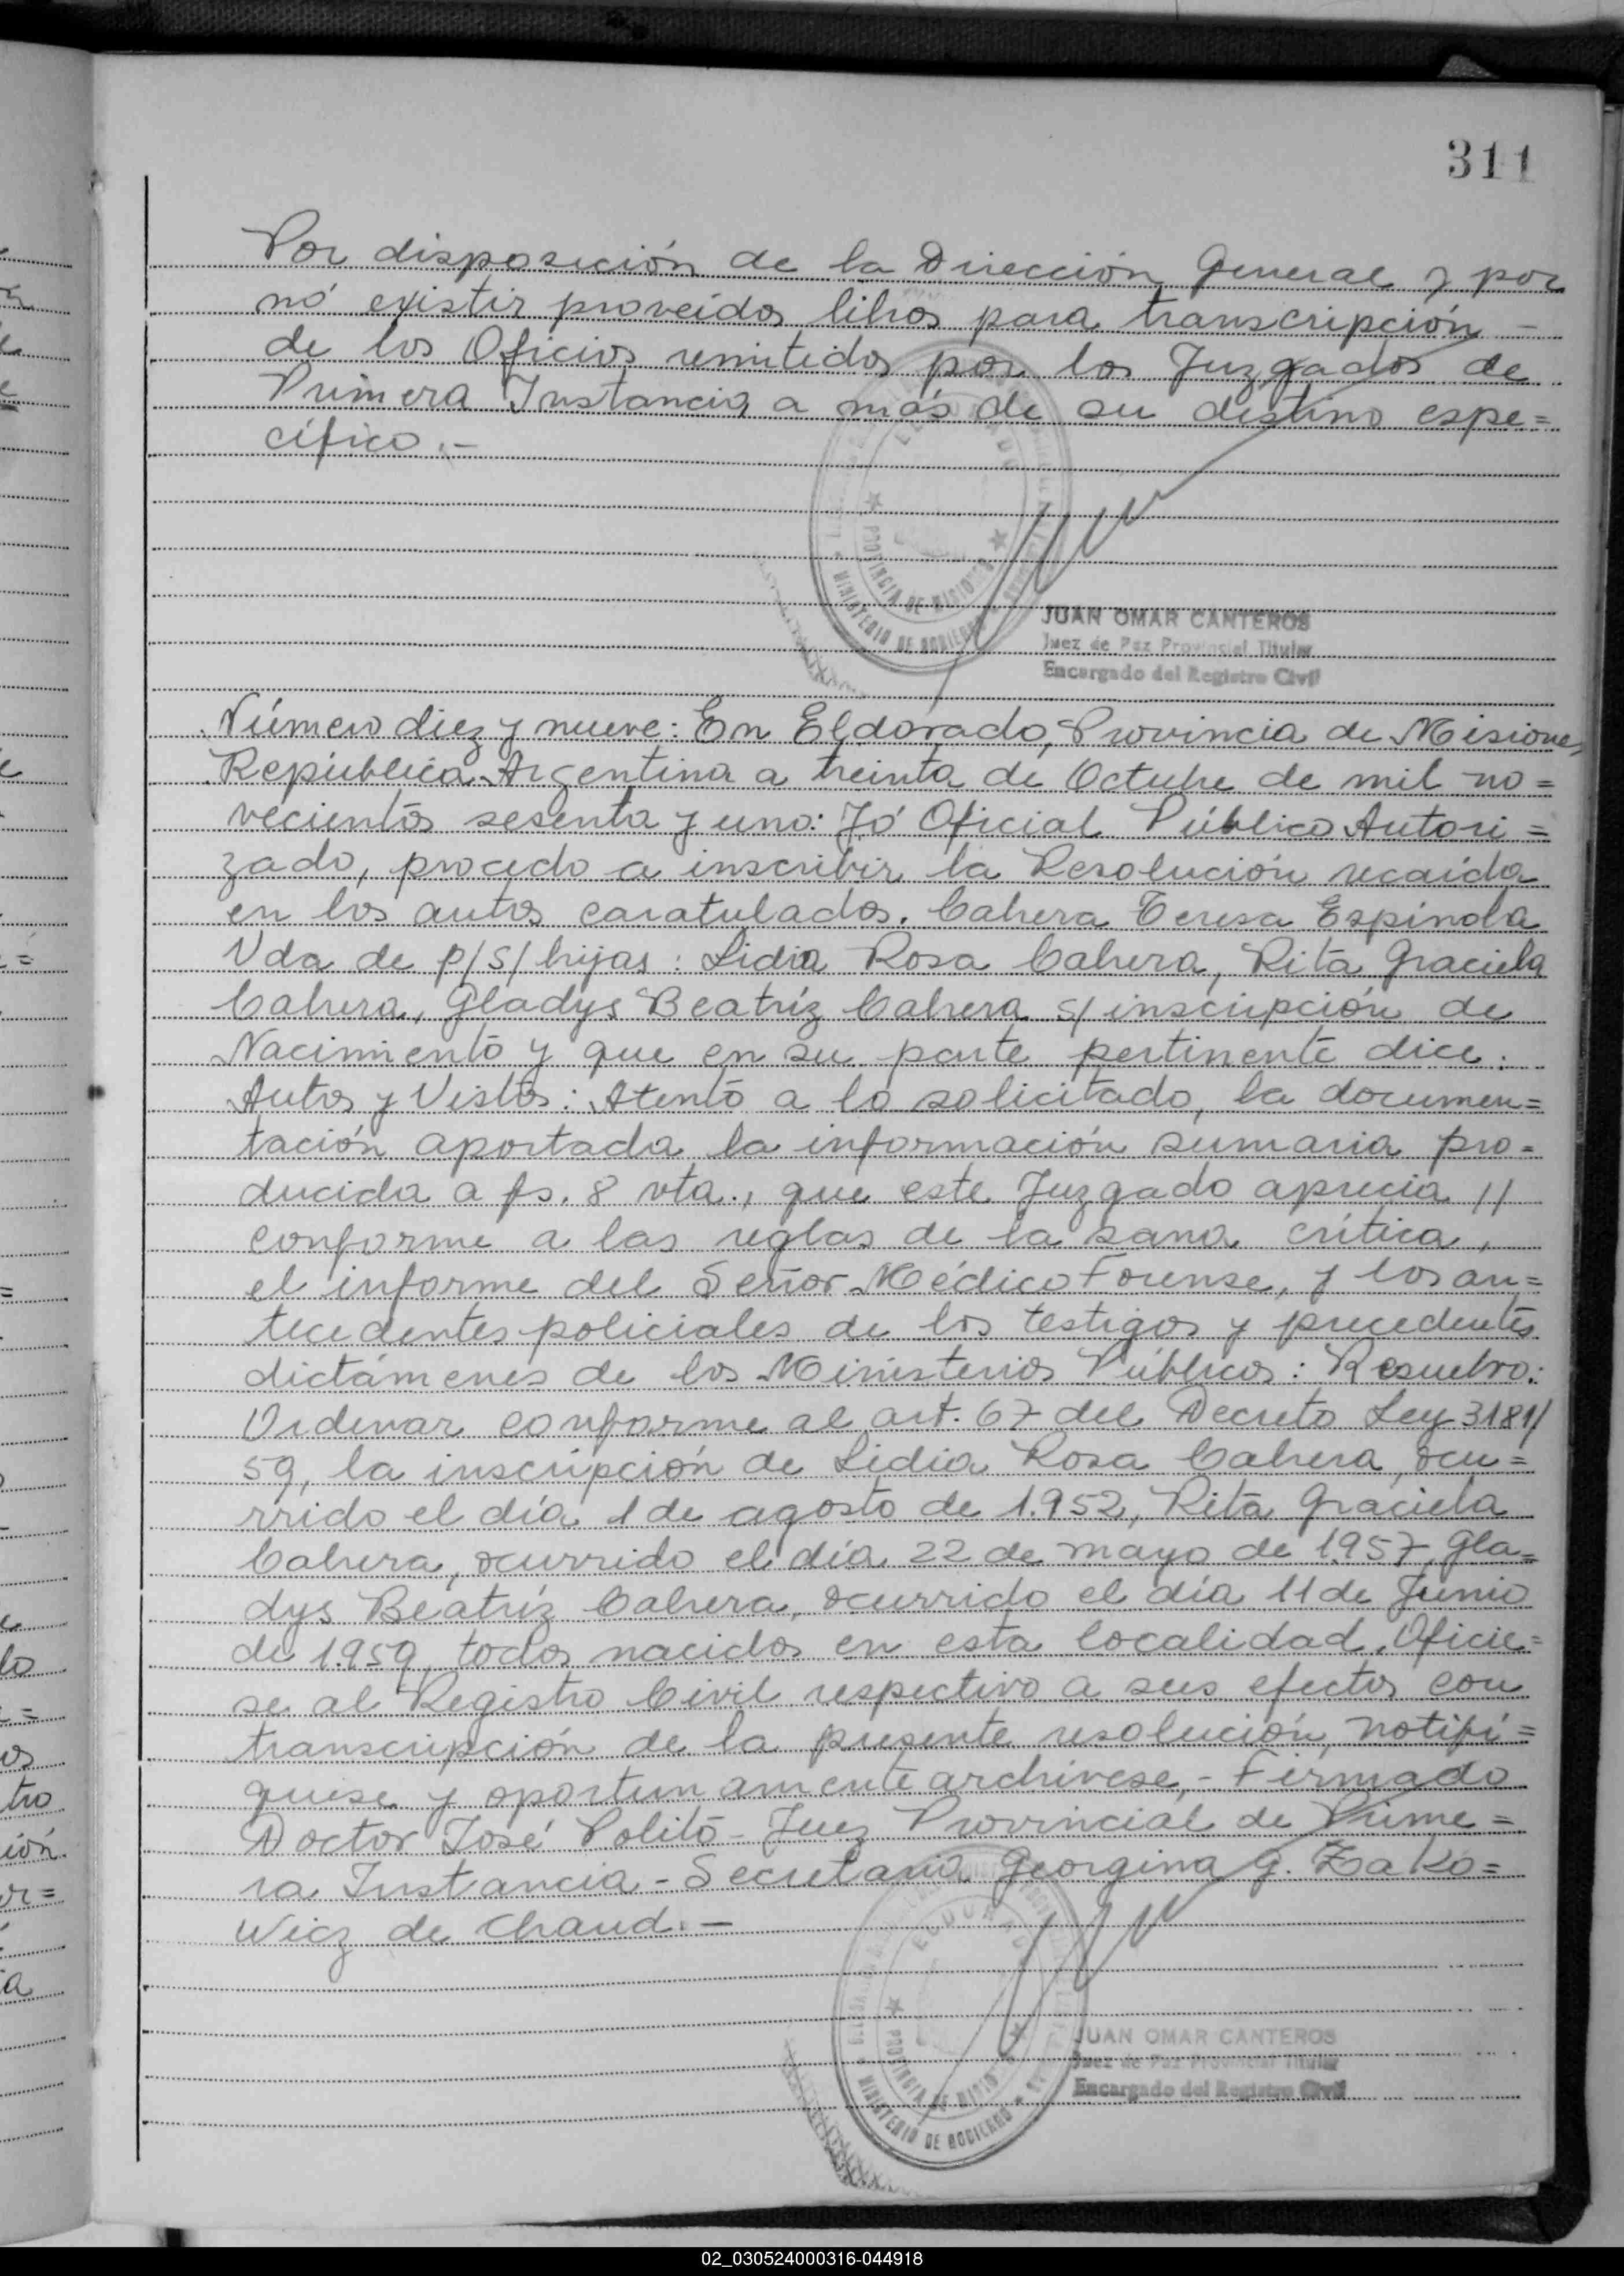 311
Por disposición de la Dirección General y por
nó existir proveídos libros para transcripción -
de los Oficios remitidos por los Juzgados de
Primera Instancia a más de su destino espe=
cífico.-
ELDORADO
PROVINCIA DE MISIONES
MINISTERIO DE GOBIERNO
JUAN OMAR CANTEROS
Juez de Paz Provincial Titular
Encargado del Registro Civil
Número diez y nueve: En Eldorado, Provincia de Misiones,
República Argentina a treinta de Octubre de mil no=
vecientos sesenta y uno: Yó Oficial Público Autori=
zado, procedo a inscribir la Resolución recaída
en los autos caratulados. Cabrera Teresa Espíndola
Vda de p/s/hijas: Lidia Rosa Cabrera, Rita Graciela
Cabrera, Gladys Beatríz Cabrera s/inscripción de
Nacimiento y que en su parte pertinente dice:
Autos y Vistos: Atento a lo solicitado, la documen=
tación aportada la información sumaria pro=
ducida a fs. 8 vta., que este Juzgado aprecia //
conforme a las reglas de la sana crítica,
el informe del Señor Médico Forense, y los an=
tecedentes policiales de los testigos y precedentes
dictámenes de los Ministerios Públicos: Resuelvo:
Ordenar conforme al art. 67 del Decreto Ley 3181/
59, la inscripción de Lidia Rosa Cabrera, ocu=
rrido el día 1 de agosto de 1.952, Rita Graciela
Cabrera, ocurrido el día 22 de mayo de 1957, Gla=
dys Beatríz Cabrera, ocurrido el día 11 de Junio
de 1.959, todos nacidos en esta localidad. Oficie=
se al Registro Civil respectivo a sus efectos con
transcripción de la presente resolución, notifí=
quese y oportunamente archívese.- Firmado
Doctor José Polito - Juez Provincial de Prime=
ra Instancia - Secretaria Georgina G. Zako=
wicz de Chaud.-
ELDORADO
PROVINCIA DE MISIONES
MINISTERIO DE GOBIERNO
JUAN OMAR CANTEROS
Juez de Paz Provincial Titular
Encargado del Registro Civil
02_030524000316-044918